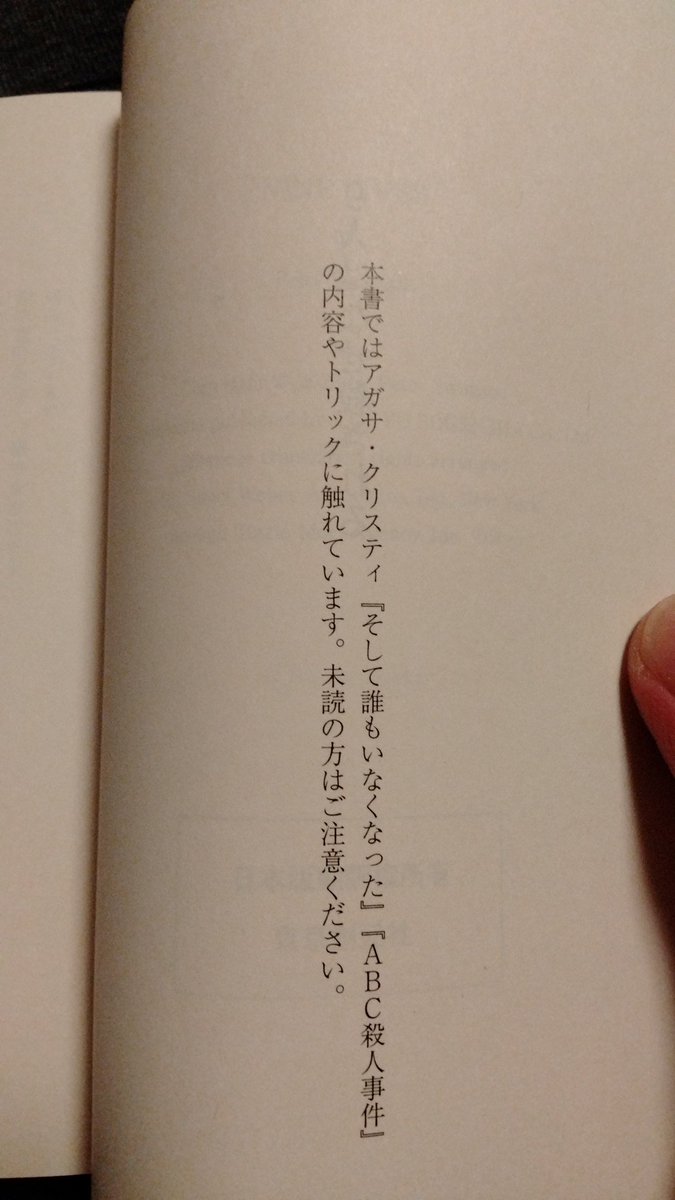 本書ではアガサ・クリスティ『そして誰もいなくなった』『ＡＢＣ殺人事件』
の内容やトリックに触れています。未読の方はご注意ください。